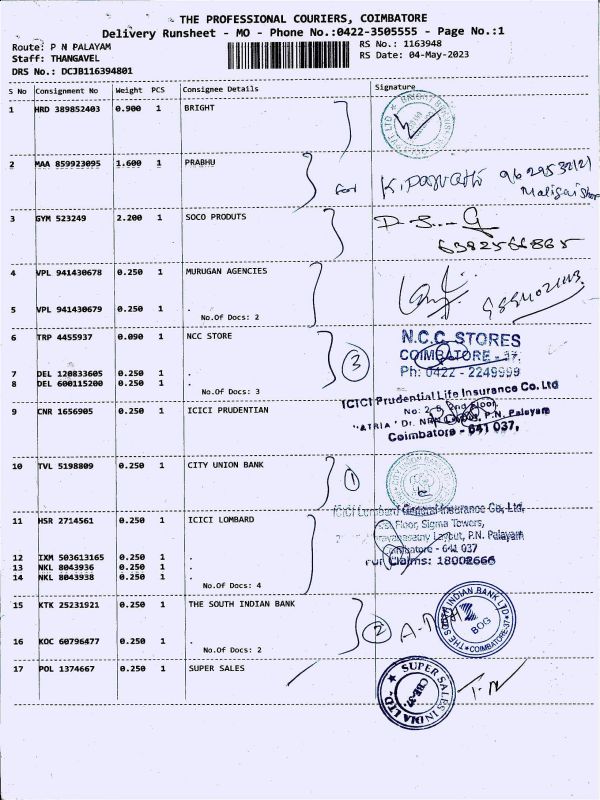 THE PROFESSIONAL COURIERS, COIMBATORE
Delivery Runsheet - MO - Phone No.:0422-3505555 - Page No.:1
Route: P N PALAYAM RS No.: 1163948
Staff: THANGAVEL RS Date: 04-May-2023
DRS No.: DCJB116394801
S No Consignment No Weight PCS Consignee Details Signature
1 HRD 389852403 0.900 1 BRIGHT
2 MAA 859923095 1.600 1 PRABHU
for
3 GYM 523249 2.200 1 SOCO PRODUTS
6382566865
4 VPL 941430678 0.250 1 MURUGAN AGENCIES
5 VPL 941430679 0.250 1 .
No.Of Docs: 2
6 TRP 4455937 0.090 1 NCC STORE
N.C.C. STORES
COIMBATORE - 37.
Ph: 0422 - 2249999
3
7 DEL 120833605 0.250 1 .
8 DEL 600115200 0.250 1 .
No.Of Docs: 3
9 CNR 1656905 0.250 1 ICICI PRUDENTIAN
ICICI Prudential Life Insurance Co. Ltd
No: 2nd Floor,
"ATRIA" Dr. P.N. Palayam
Coimbatore - 641 037,
10 TVL 5198809 0.250 1 CITY UNION BANK
1
11 HSR 2714561 0.250 1 ICICI LOMBARD
ICICI Lombard General Insurance Co, Ltd,
Floor, Sigma Towers,
Layout, P.N. Palayam
Coimbatore - 641 037
For Claims: 18002666
12 IXM 503613165 0.250 1 .
13 NKL 8043936 0.250 1 .
14 NKL 8043938 0.250 1 .
No.Of Docs: 4
15 KTK 25231921 0.250 1 THE SOUTH INDIAN BANK
THE SOUTH INDIAN BANK LTD
BOG
COIMBATORE-37
2
16 KOC 60796477 0.250 1 .
No.Of Docs: 2
17 POL 1374667 0.250 1 SUPER SALES
SUPER SALES INDIA LTD
CBE-37.